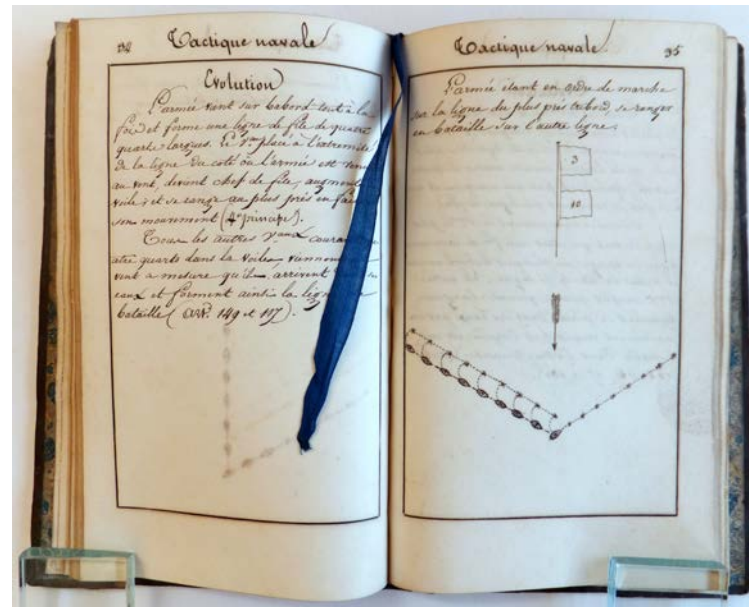 34
Tactique navale
Evolution
L'armée vient sur babord tout à la
fois et forme une ligne de file de quatre
quarts largues. Le Vau placé à l'extremité
de la ligne du coté où l'armée est venu
au vent, devient chef de file, augmente
voile, et se range au plus près en
son mouvement (4e principe).
Tous les autres Vaux
quarts dans la voile, viennent
vent a mesure qu'ils arrivent
eaux et forment ainsi la ligne
bataille (art. 149 et 117).
Tactique navale.
35
L'armée étant en ordre de marche
sur la ligne du plus près tribord, se ranger
en bataille sur l'autre ligne.
3
10